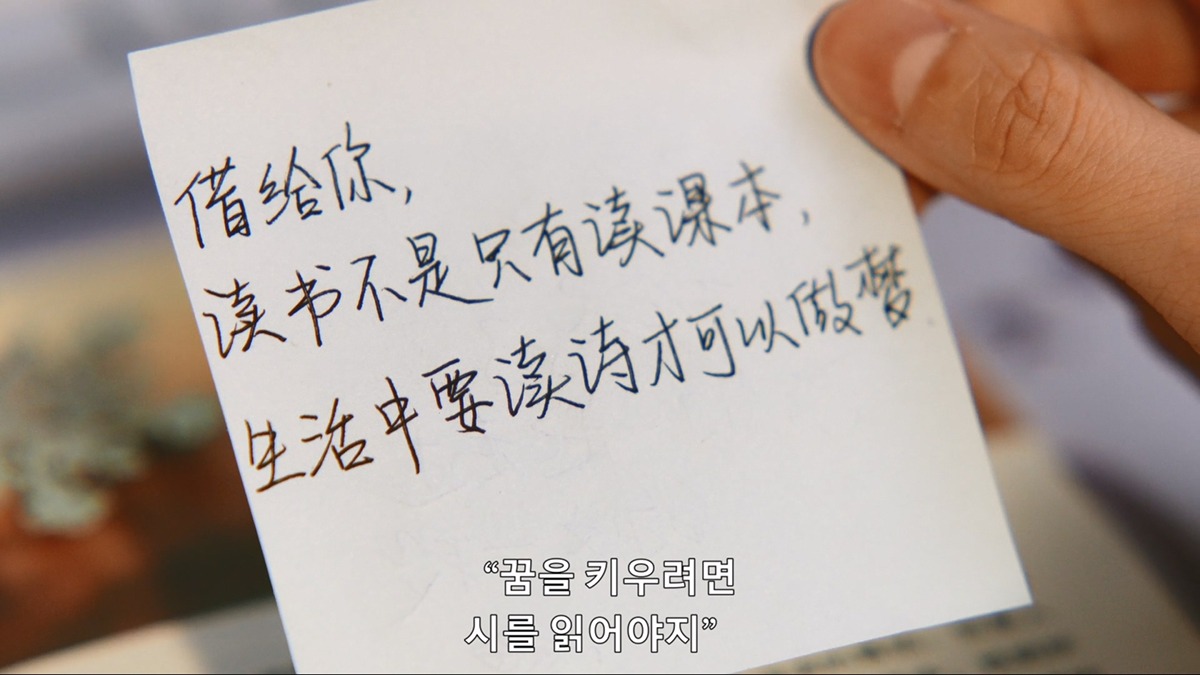 借给你,
读书不是只有读课本,
生活中要读诗才可以做梦.
“꿈을 키우려면
시를 읽어야지”